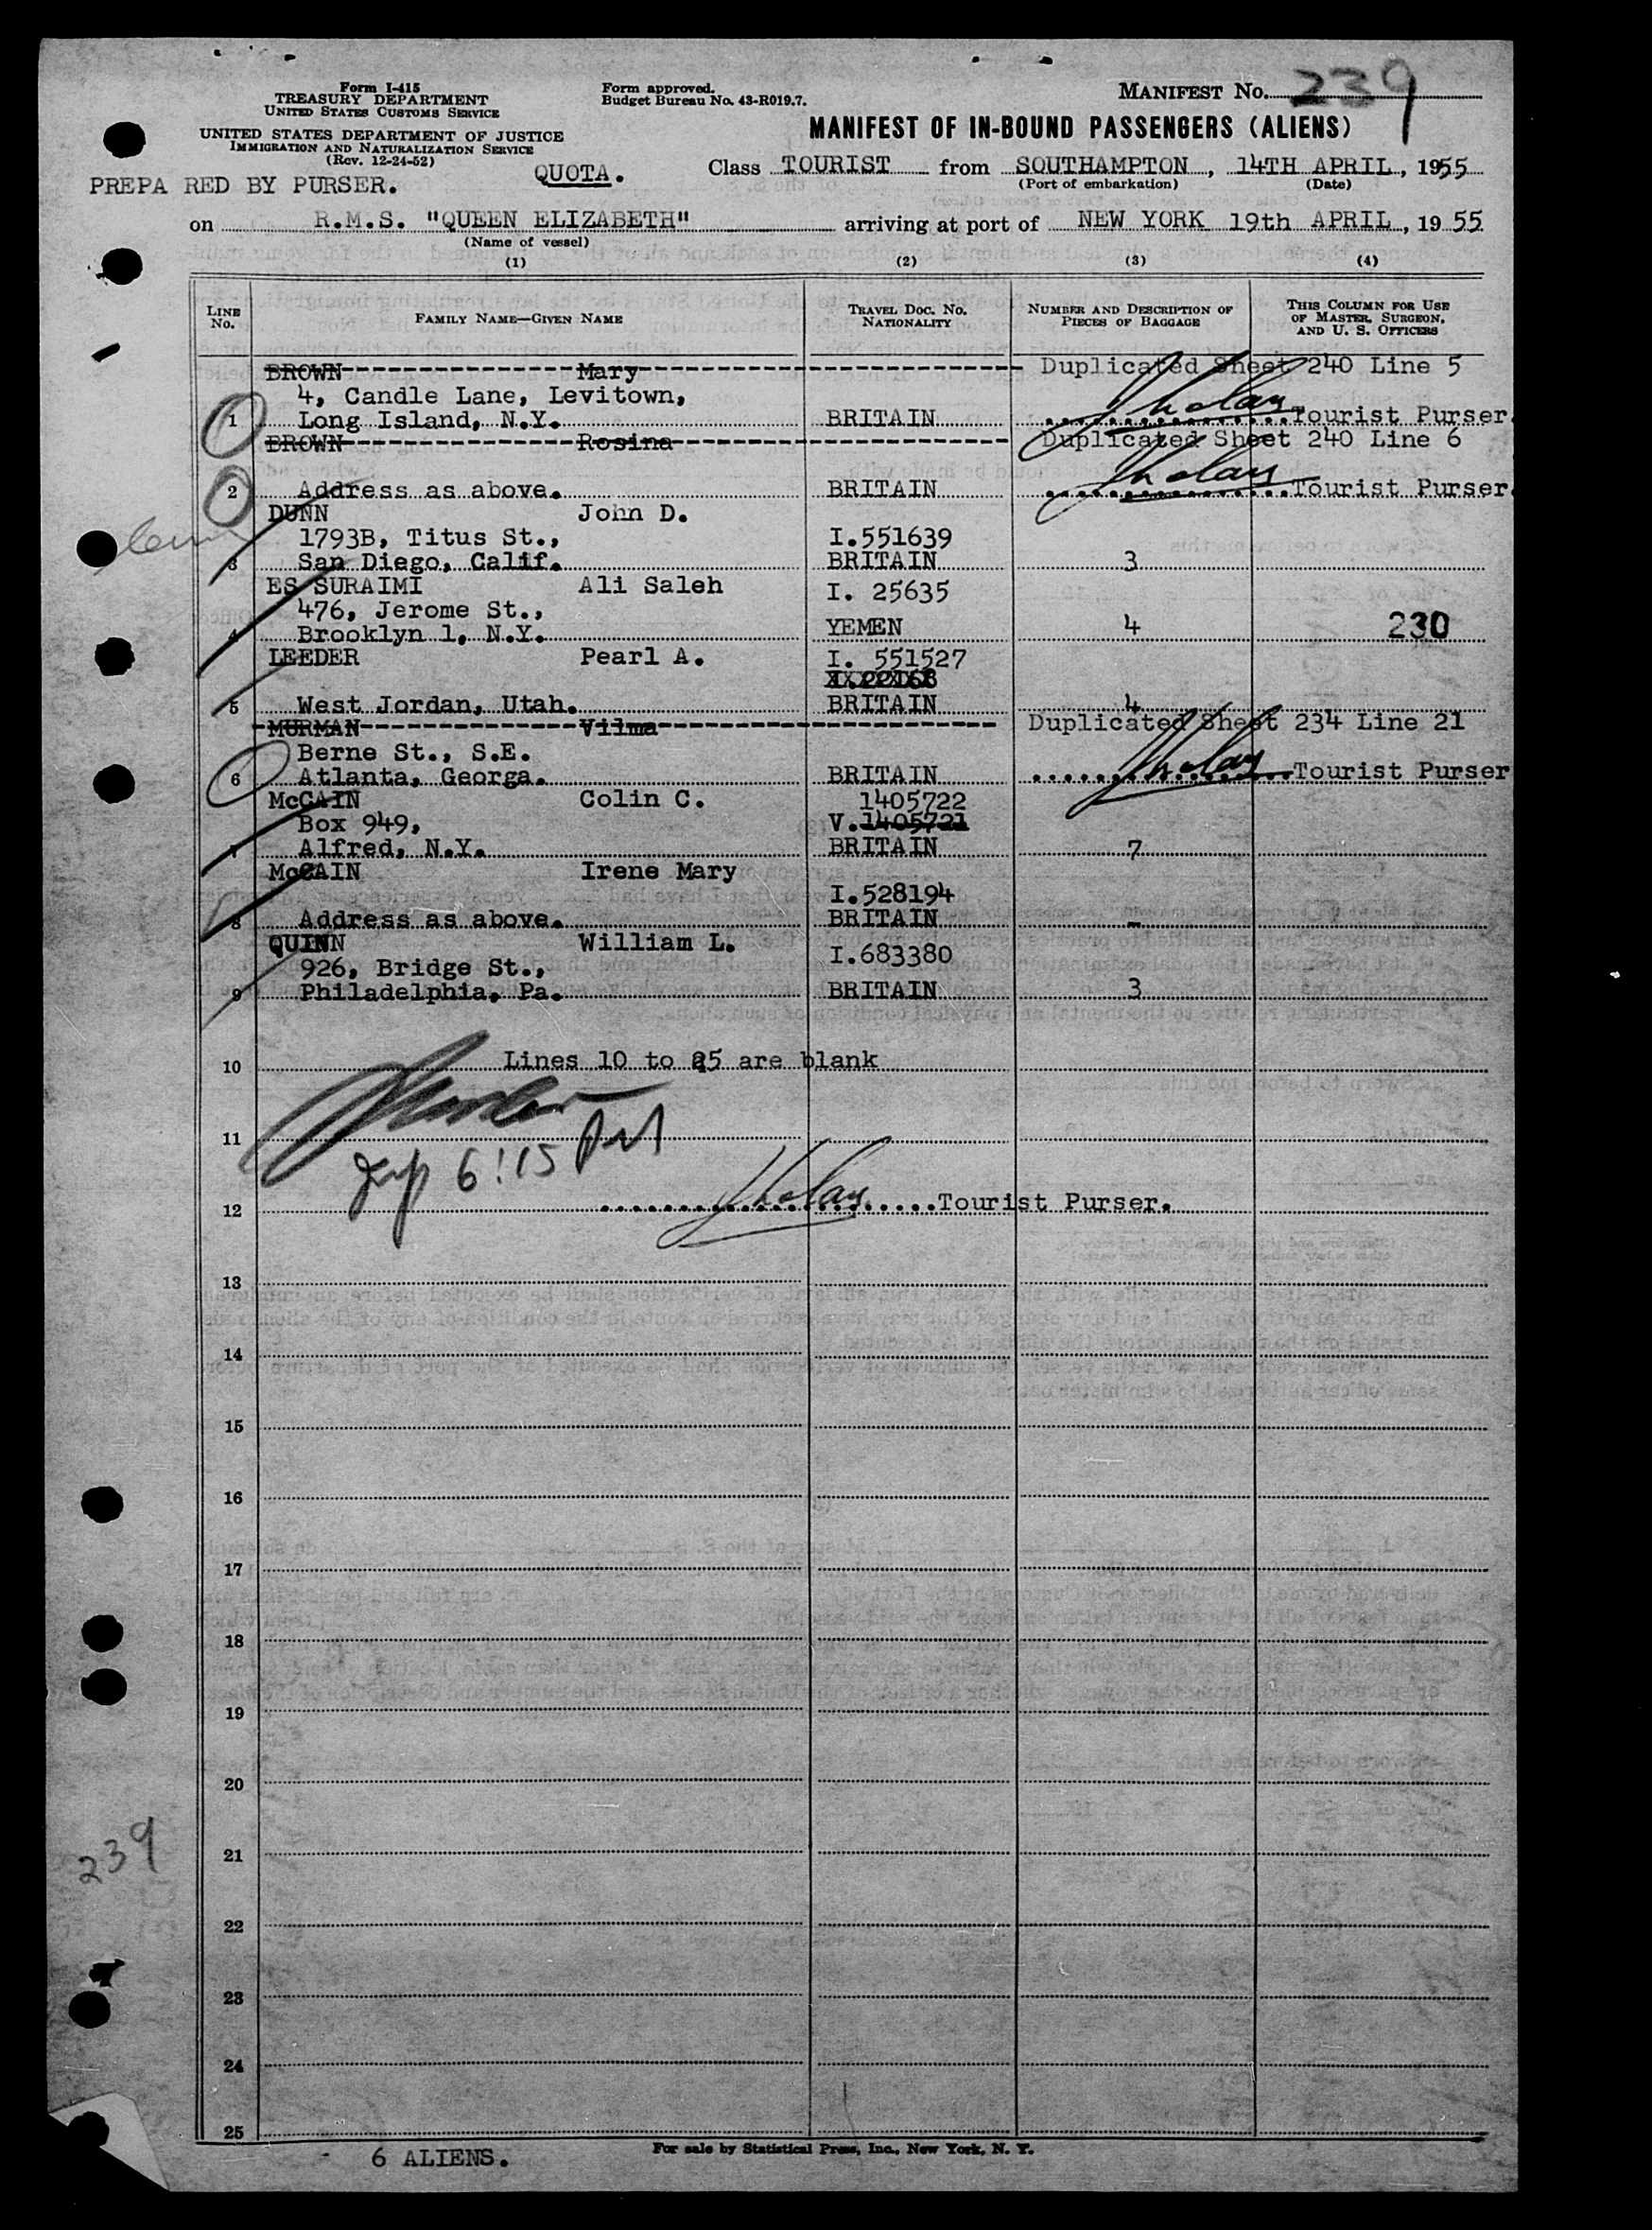 Form I-415
TREASURY DEPARTMENT
UNITED STATES CUSTOMS SERVICE
UNITED STATES DEPARTMENT OF JUSTICE
IMMIGRATION AND NATURALIZATION SERVICE
(Rev. 12-24-52)
PREPA RED BY PURSER.
QUOTA.
Form approved.
Budget Bureau No. 43-R019.7.
MANIFEST No. 239
MANIFEST OF IN-BOUND PASSENGERS (ALIENS)
Class TOURIST from SOUTHAMPTON, 14TH APRIL, 1955
(Port of embarkation) (Date)
on R.M.S. "QUEEN ELIZABETH" arriving at port of NEW YORK 19th APRIL, 1955
(Name of vessel)
(1) (2) (3) (4)
LINE No. FAMILY NAME—GIVEN NAME TRAVEL DOC. NO. NATIONALITY NUMBER AND DESCRIPTION OF PIECES OF BAGGAGE THIS COLUMN FOR USE OF MASTER, SURGEON, AND U. S. OFFICERS
BROWN Mary Duplicated Sheet 240 Line 5
4, Candle Lane, Levitown,
1 Long Island, N.Y. BRITAIN Tourist Purser.
BROWN Rosina Duplicated Sheet 240 Line 6
2 Address as above. BRITAIN Tourist Purser.
DUNN John D.
1793B, Titus St., I.551639
3 San Diego, Calif. BRITAIN 3
ES SURAIMI Ali Saleh I. 25635
476, Jerome St.,
4 Brooklyn 1, N.Y. YEMEN 4 230
LEEDER Pearl A. I. 551527
5 West Jordan, Utah. BRITAIN 4
MURMAN Vilma Duplicated Sheet 234 Line 21
Berne St., S.E.
6 Atlanta, Georga. BRITAIN Tourist Purser
McCAIN Colin C. 1405722
Box 949, V.1405721
7 Alfred, N.Y. BRITAIN 7
McCAIN Irene Mary
I.528194
8 Address as above. BRITAIN -
QUINN William L. I.683380
926, Bridge St.,
9 Philadelphia, Pa. BRITAIN 3
10 Lines 10 to 25 are blank
11
6:15 PM
12 Tourist Purser.
13
14
15
16
17
18
19
20
239
21
22
23
24
25
6 ALIENS.
For sale by Statistical Press, Inc., New York, N. Y.